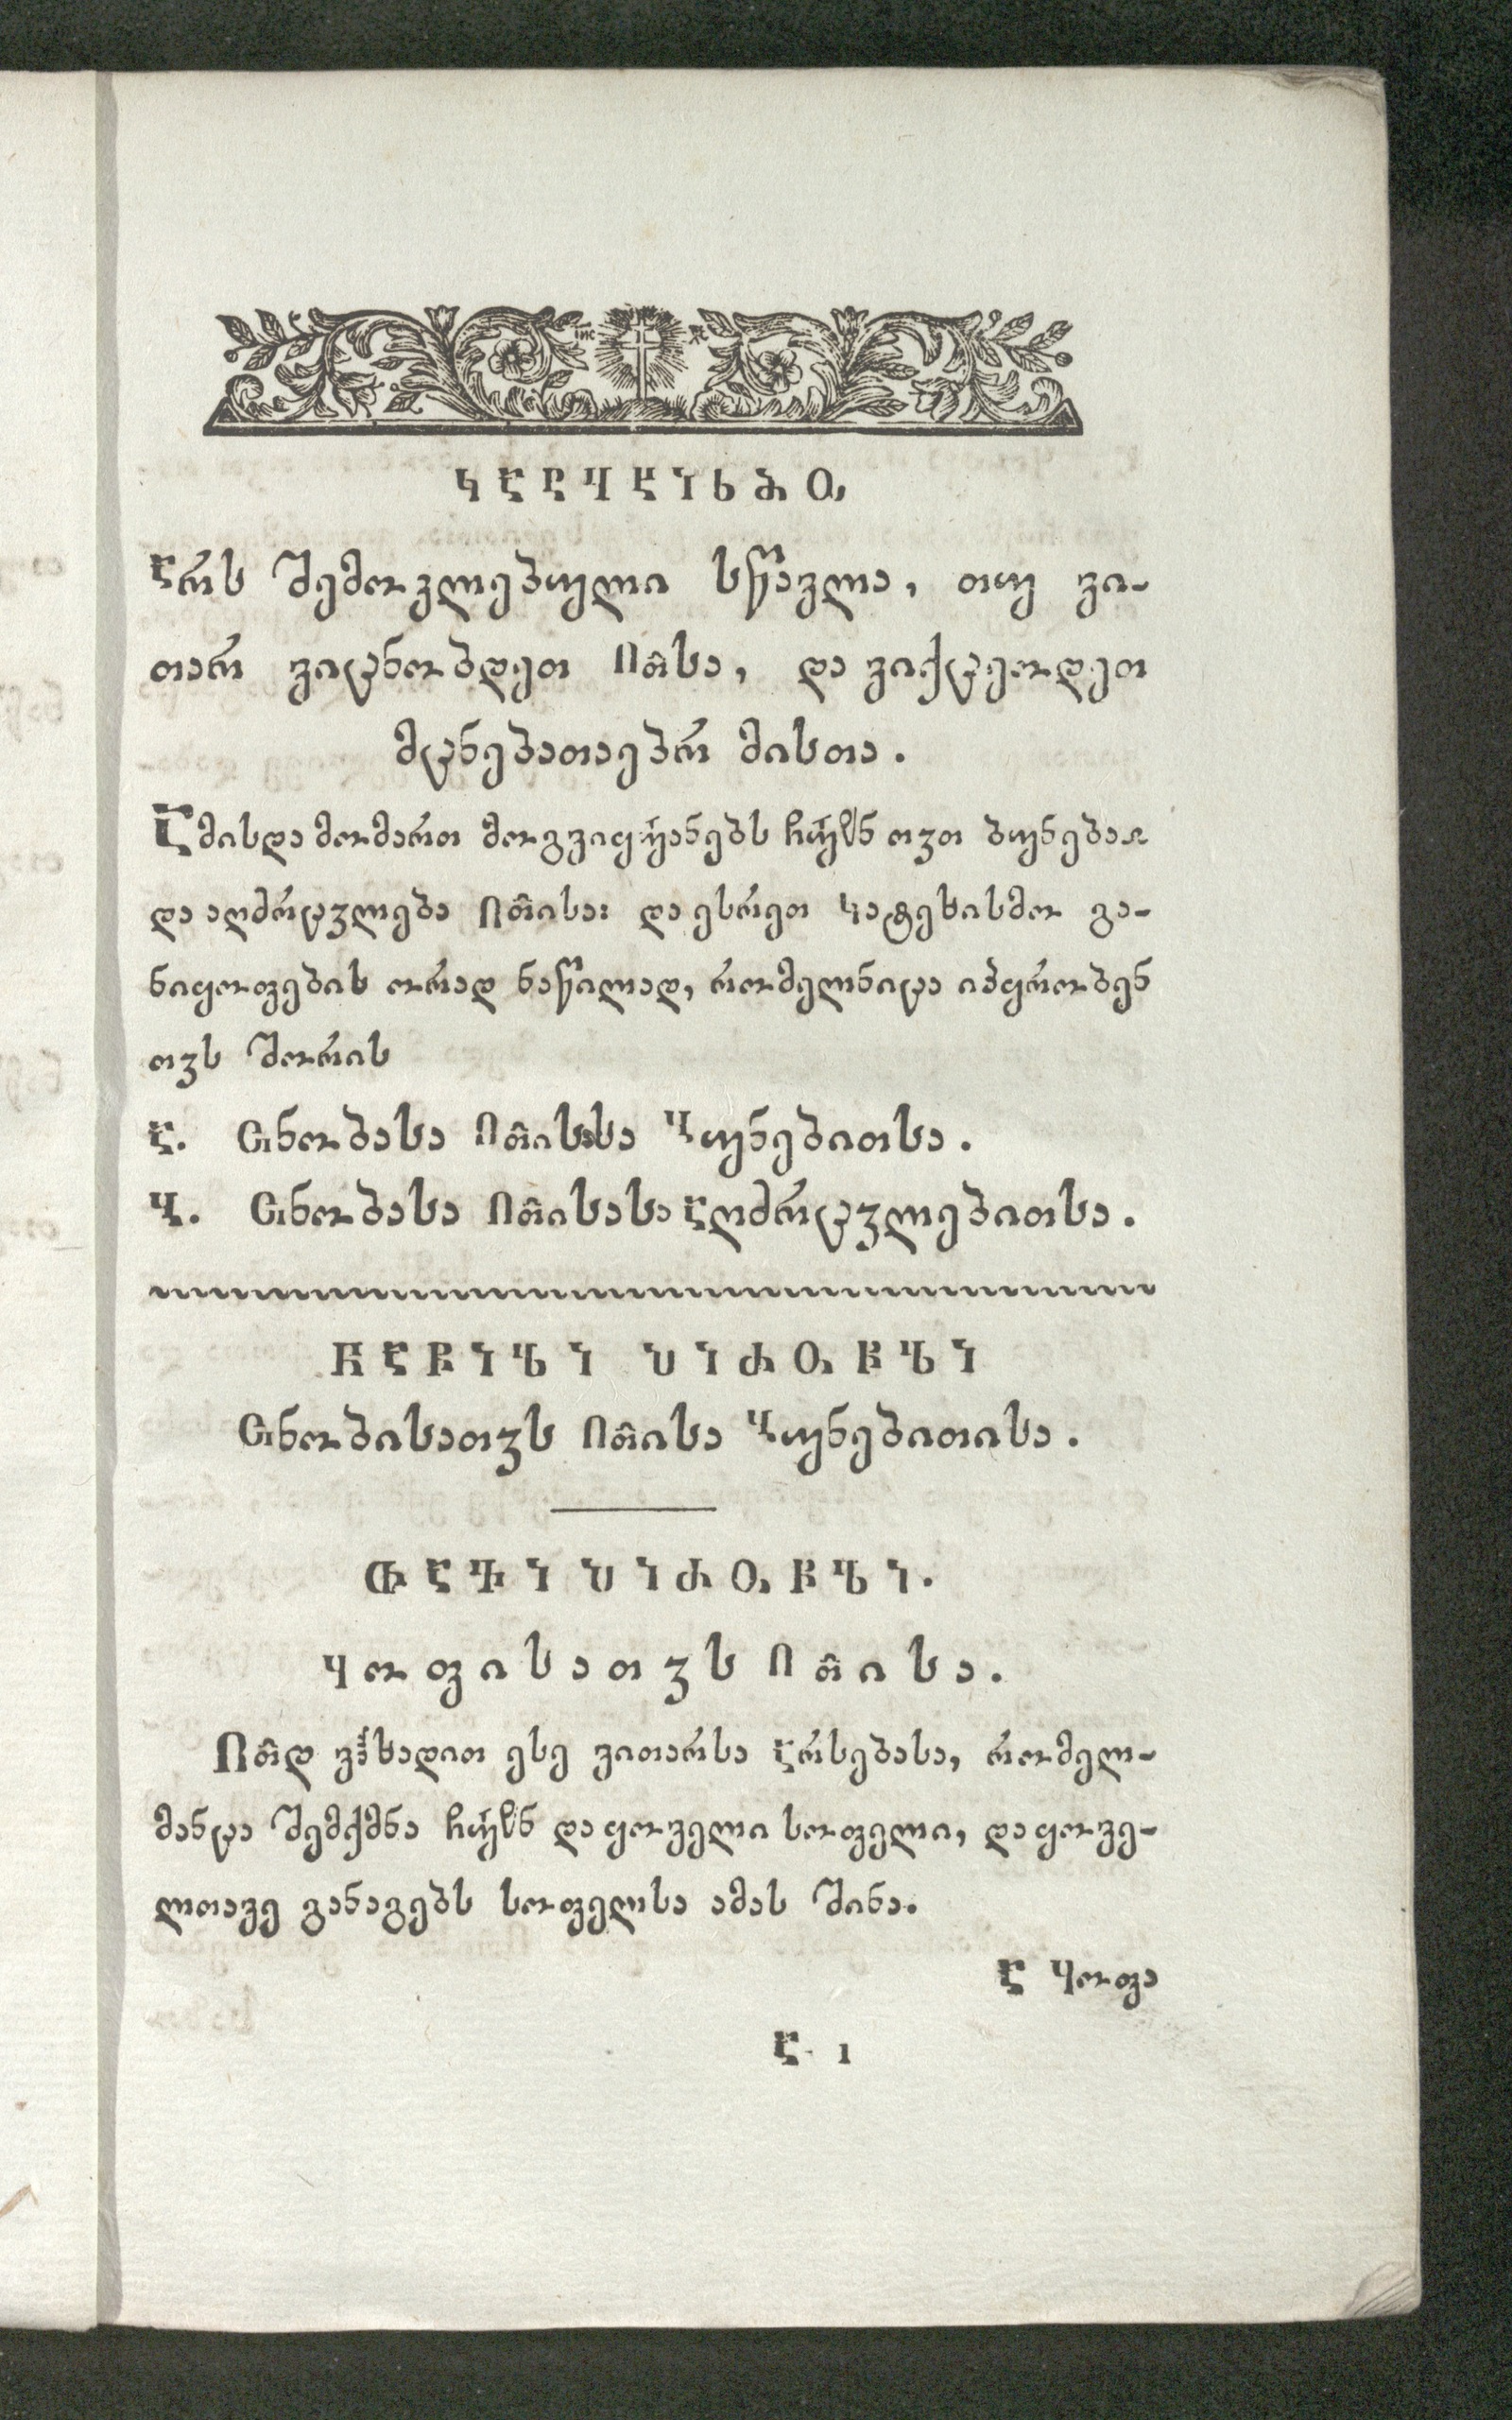 ႩႠႲႤႾႨႱႫႭ
Ⴀრს შემოკლებული სწავლა, თუ ვი-
თარ ვიცნობდეთ Ⴖ~თსა, და ვიქცეოდეთ
მცნებათაებრ მისთა.
Ⴀმისდა მომართ მოგვიყვანებს ჩუენ თჳთ ბუნებაჲ
და აღმრცჳლება Ⴖ~თისა: და ესრეთ კატეხისმო გა-
ნიყოფების ორად ნაწილად, რომელნიცა იპყრობენ
თჳს შორის
Ⴀ. Ⴚნობასა Ⴖ~თისასა Ⴁუნებითსა.
Ⴁ. Ⴚნობასა Ⴖ~თისასა Ⴀღმრცჳლებითსა.
ႬႠႼႨႪႨ ႮႨႰႥႤႪႨ
Ⴚნობისათჳს Ⴖ~თისა Ⴁუნებითისა.
ႧႠႥႨ ႮႨႰႥႤႪႨ.
Ⴗოფისათჳს Ⴖ~თისა.
Ⴖ~თდ ვჰხადით ესე ვითარსა Ⴀრსებასა, რომელ-
მანცა შემქმნა ჩუენ და ყოველი სოფელი, და ყოვე-
ლთავე განაგებს სოფელსა ამას შინა.
Ⴀ Ⴗოფა
Ⴀ 1